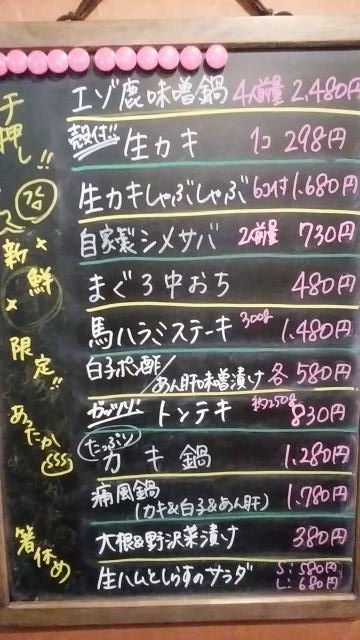 エゾ鹿味噌鍋 4人前量 2,480円
殻付!! 生カキ 1コ 298円
生カキしゃぶしゃぶ 6コ付 1,680円
自家製シメサバ 2人前量 730円
まぐろ中おち 480円
馬ハラミステーキ 300g 1,480円
白子ポン酢/あん肝味噌漬け 各580円
ガッツリ トンテキ 約250g 830円
たっぷり カキ鍋 1,280円
痛風鍋 (カキ&白子&あん肝) 1,780円
大根&野沢菜漬け 380円
生ハムとしらすのサラダ S:580円 L:680円
押し!!
新鮮
限定!!
あったか
箸休め